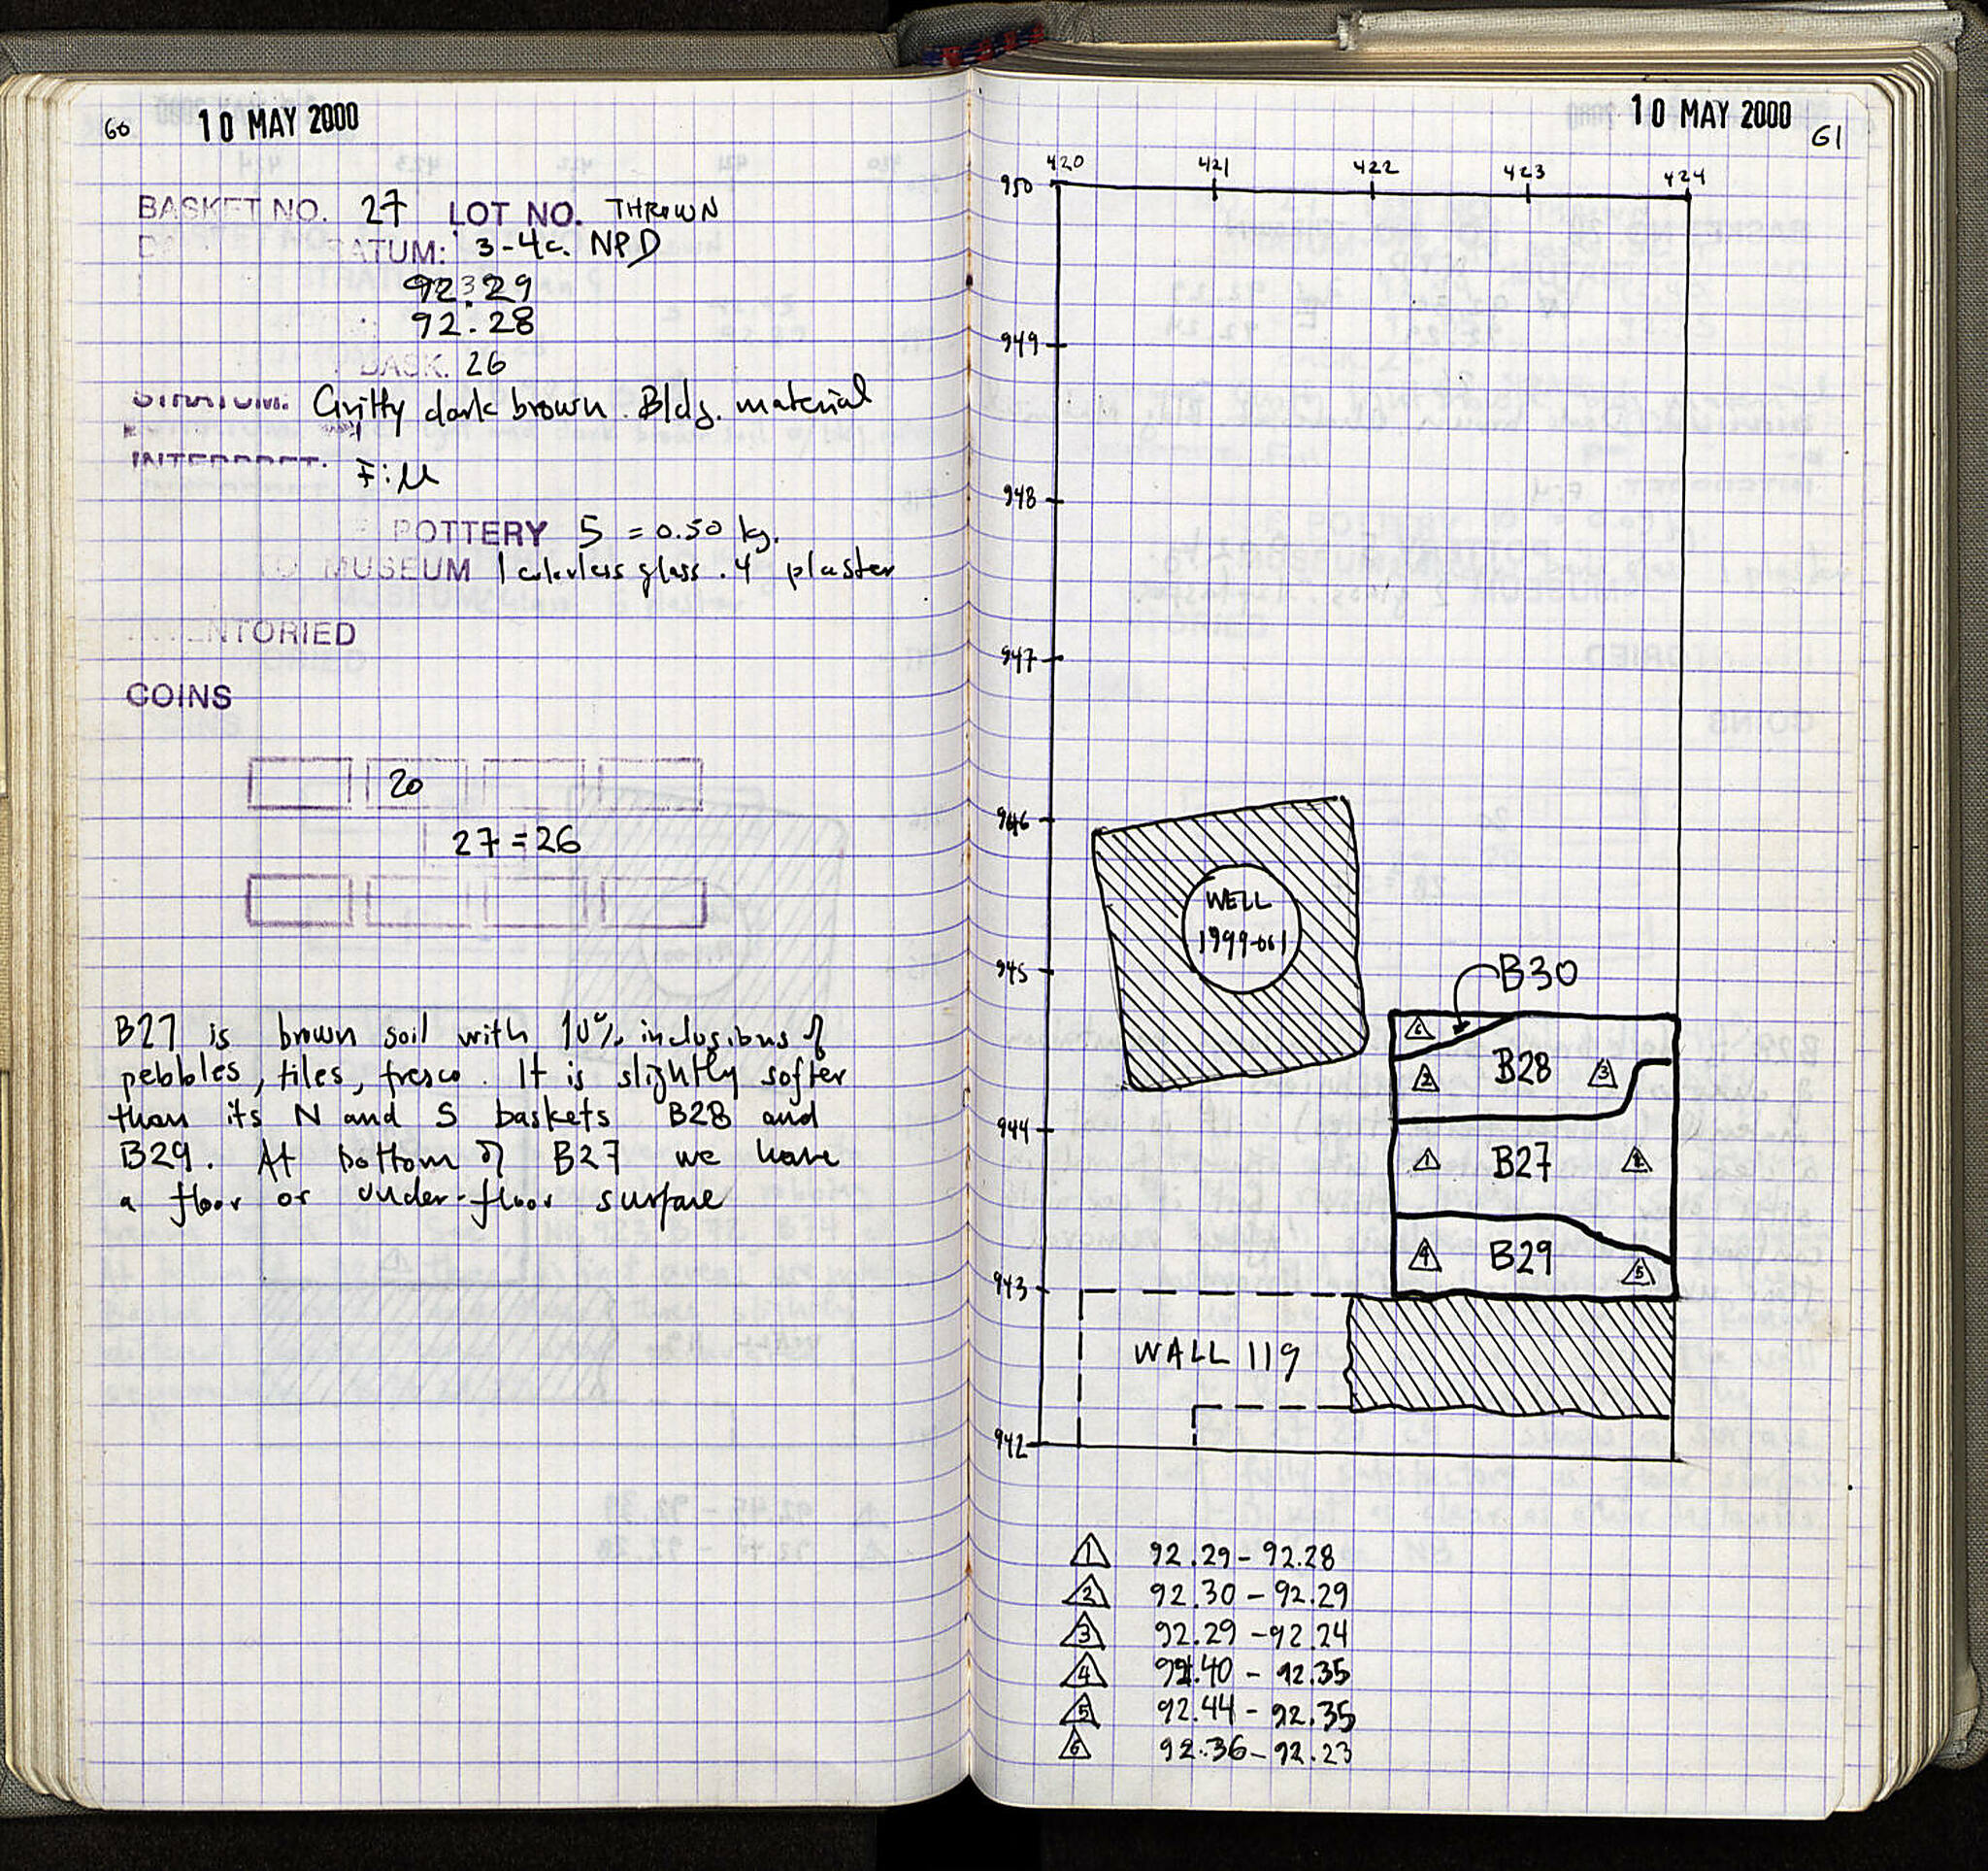 60 10 MAY 2000
BASKET NO. 27 LOT NO. THROWN
DATUM: 3-4c. NPD
92.29
92.28
BASK. 26
STRATUM: Gritty dark brown. Bldg. material
INTERPRET. Fill
POTTERY 5 = 0.50 kg.
TO MUSEUM 1 colorless glass. 4 plaster
INVENTORIED
COINS
20
27 = 26
B27 is brown soil with 10% inclusions of
pebbles, tiles, fresco. It is slightly softer
than its N and S baskets B28 and
B29. At bottom of B27 we have
a floor or under-floor surface
10 MAY 2000 61
420 421 422 423 424
950
949
948
947
946
WELL
1999-001
945
B30
6
2 B28 3
944
1 B27
4 B29 5
943
WALL 119
942
1 92.29 - 92.28
2 92.30 - 92.29
3 92.29 - 92.24
4 92.40 - 92.35
5 92.44 - 92.35
6 92.36 - 92.23